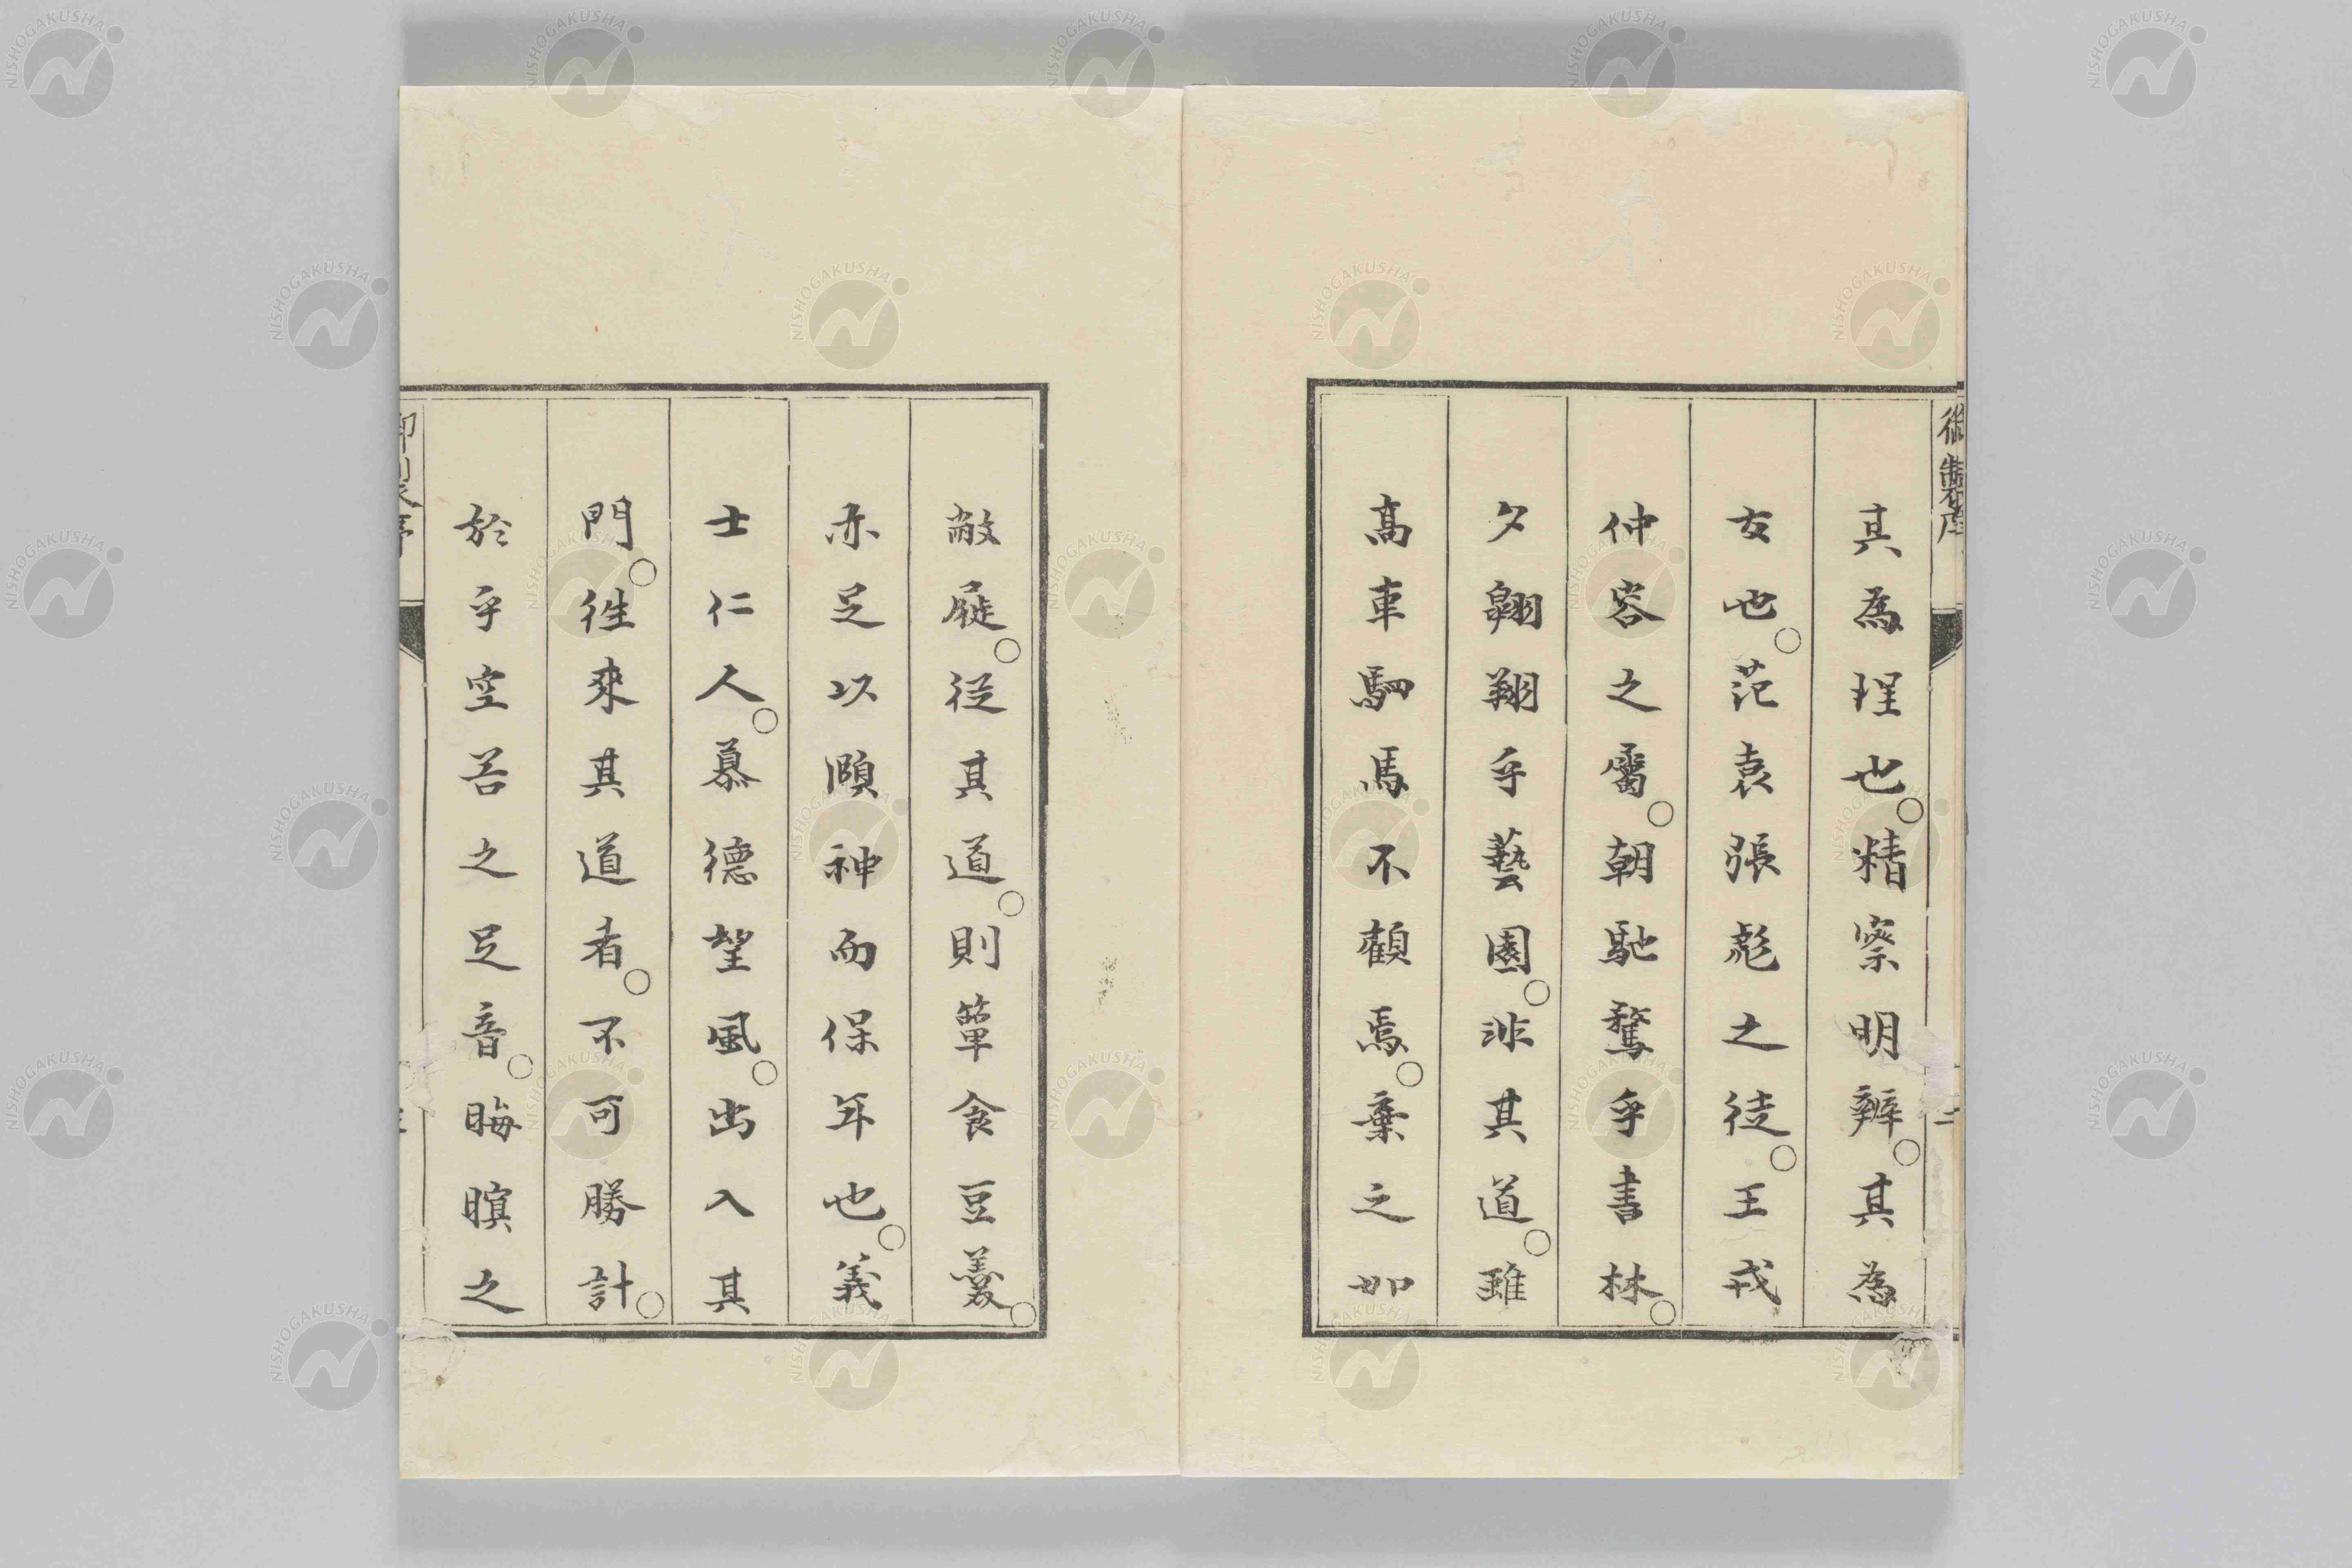 御製序
其為理也○精察明辨○其為
友也○范袁張彪之徒○王戎
仲容之屬○朝馳騖乎書林○
夕翱翔乎藝園○非其道○雖
高車駟馬不顧焉○棄之如
敝屣○從其道○則簞食豆羹○
亦足以頤神而保年也○義
士仁人○慕德望風○出入其
門○往來其道者○不可勝計○
於乎空谷之足音○晦暝之
NISHOGAKUSHA